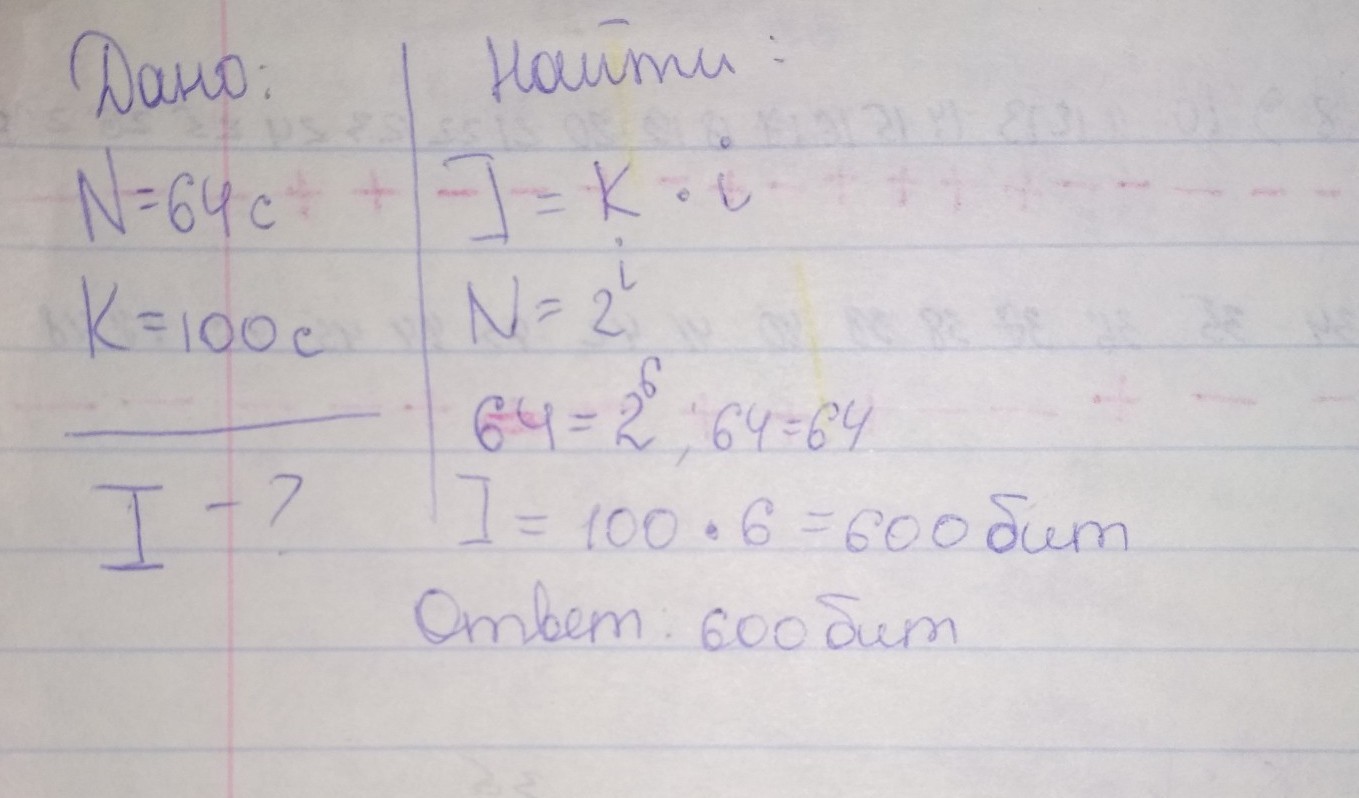 Дано:
N=64с
K=100с
I - ?
Найти:
I = K · i
N = 2^i
64 = 2^6, 64=64
I = 100 · 6 = 600 бит
Ответ: 600 бит